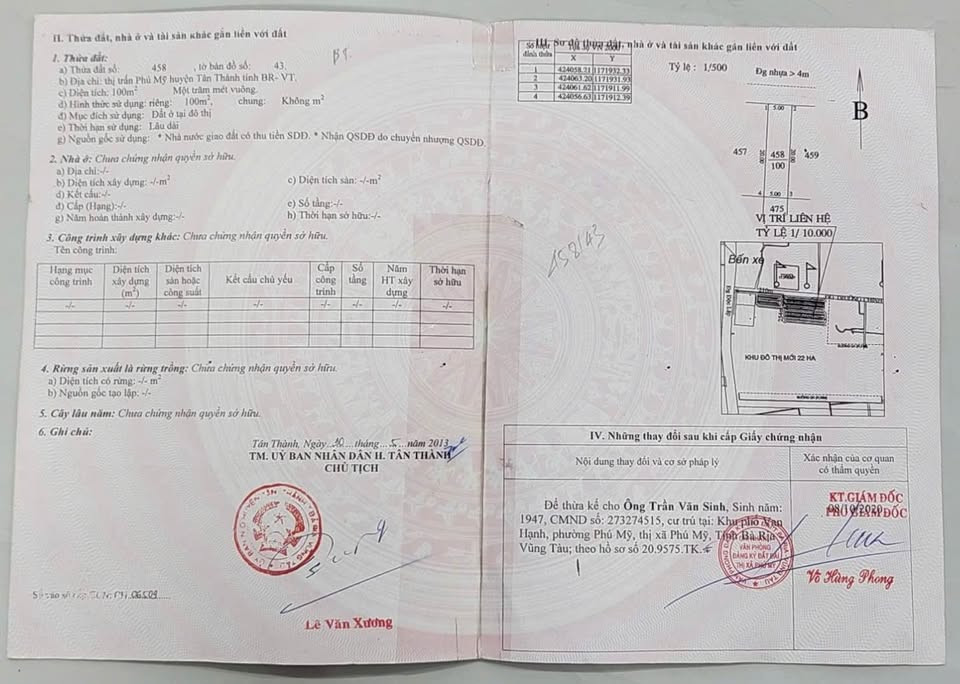 II. Thửa đất, nhà ở và tài sản khác gắn liền với đất
1. Thửa đất:
a) Thửa đất số: 458 , tờ bản đồ số: 43.
b) Địa chỉ: thị trấn Phú Mỹ huyện Tân Thành tỉnh BR- VT.
c) Diện tích: 100m² Một trăm mét vuông.
d) Hình thức sử dụng: riêng: 100m², chung: Không m²
đ) Mục đích sử dụng: Đất ở tại đô thị
e) Thời hạn sử dụng: Lâu dài
g) Nguồn gốc sử dụng: * Nhà nước giao đất có thu tiền SDĐ. * Nhận QSDĐ do chuyển nhượng QSDĐ.
2. Nhà ở: Chưa chứng nhận quyền sở hữu.
a) Địa chỉ:-/-
b) Diện tích xây dựng: -/-m² c) Diện tích sàn: -/-m²
d) Kết cấu:-/-
đ) Cấp (Hạng):-/- e) Số tầng:-/-
g) Năm hoàn thành xây dựng:-/- h) Thời hạn sở hữu:-/-
3. Công trình xây dựng khác: Chưa chứng nhận quyền sở hữu.
Tên công trình:
Hạng mục công trình Diện tích xây dựng (m²) Diện tích sàn hoặc công suất Kết cấu chủ yếu Cấp công trình Số tầng Năm HT xây dựng Thời hạn sở hữu
-/- -/- -/- -/- -/- -/- -/- -/-
4. Rừng sản xuất là rừng trồng: Chưa chứng nhận quyền sở hữu.
a) Diện tích có rừng: -/- m²
b) Nguồn gốc tạo lập: -/-
5. Cây lâu năm: Chưa chứng nhận quyền sở hữu.
6. Ghi chú:
Tân Thành, Ngày 10 tháng 5 năm 2013
TM. UỶ BAN NHÂN DÂN H. TÂN THÀNH
CHỦ TỊCH
Lê Văn Xương
III. Sơ đồ thửa đất, nhà ở và tài sản khác gắn liền với đất
Số hiệu đỉnh thửa
X Y
1 424058.21 1171932.33
2 424063.20 1171931.93
3 424061.62 1171911.99
4 424056.63 1171912.39
Tỷ lệ : 1/500
Đg nhựa > 4m
B
1 5.00 2
457 20.00 458 20.00 459
100
4 5.00 3
475
458/43
VỊ TRÍ LIÊN HỆ
TỶ LỆ 1/ 10.000
Bến xe
KHU ĐÔ THỊ MỚI 22 HA
IV. Những thay đổi sau khi cấp Giấy chứng nhận
Nội dung thay đổi và cơ sở pháp lý
Xác nhận của cơ quan có thẩm quyền
Để thừa kế cho Ông Trần Văn Sinh, Sinh năm:
1947, CMND số: 273274515, cư trú tại: Khu phố Vạn
Hạnh, phường Phú Mỹ, thị xã Phú Mỹ, Tỉnh Bà Rịa
Vũng Tàu; theo hồ sơ số 20.9575.TK.
KT.GIÁM ĐỐC
08/10/2020
PHÓ GIÁM ĐỐC
VĂN PHÒNG
ĐĂNG KÝ ĐẤT ĐAI
THỊ XÃ PHÚ MỸ
Võ Hùng Phong